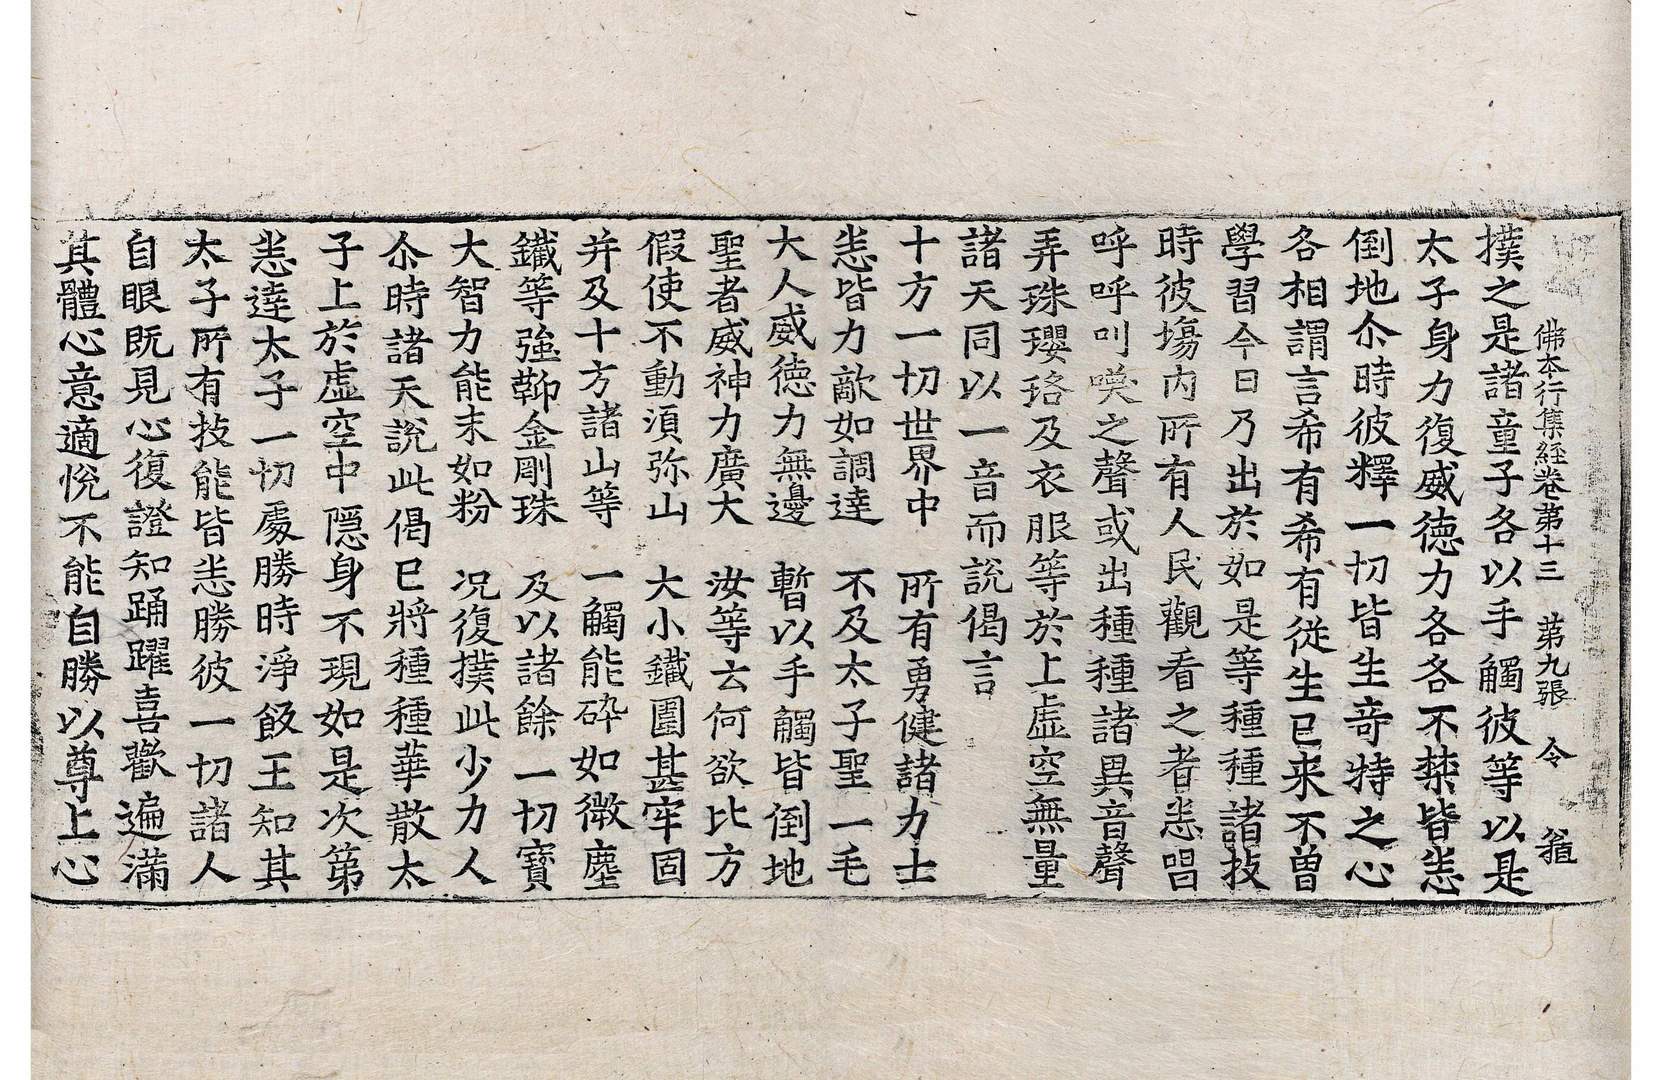 佛本行集經卷第十三 第九張 令
撲之是諸童子各以手觸彼等以是
太子身力復威德力各各不禁皆悉
倒地尒時彼釋一切皆生竒特之心
各相謂言希有希有從生已来不曽
學習今日乃出於如是等種種諸技
時彼塲内所有人民觀看之者悉唱
呼呼叫喚之聲或出種種諸異音聲
弄珠瓔珞及衣服等於上虛空無量
諸天同以一音而說偈言
十方一切世界中 所有勇健諸力士
悉皆力敵如調達 不及太子聖一毛
大人威德力無邊 暫以手觸皆倒地
聖者威神力廣大 汝等云何欲比方
假使不動湏弥山 大小鐵圍甚牢固
并及十方諸山等 一觸能碎如微塵
鐵等強鞕金剛珠 及以諸餘一切寶
大智力能末如粉 况復撲此少力人
尒時諸天說此偈已將種種華散太
子上於虛空中隱身不現如是次第
悉達太子一切處勝時淨飯王知其
太子所有技能皆悉勝彼一切諸人
自眼既見心復證知踊躍喜歡遍滿
其體心意適悅不能自勝以尊上心